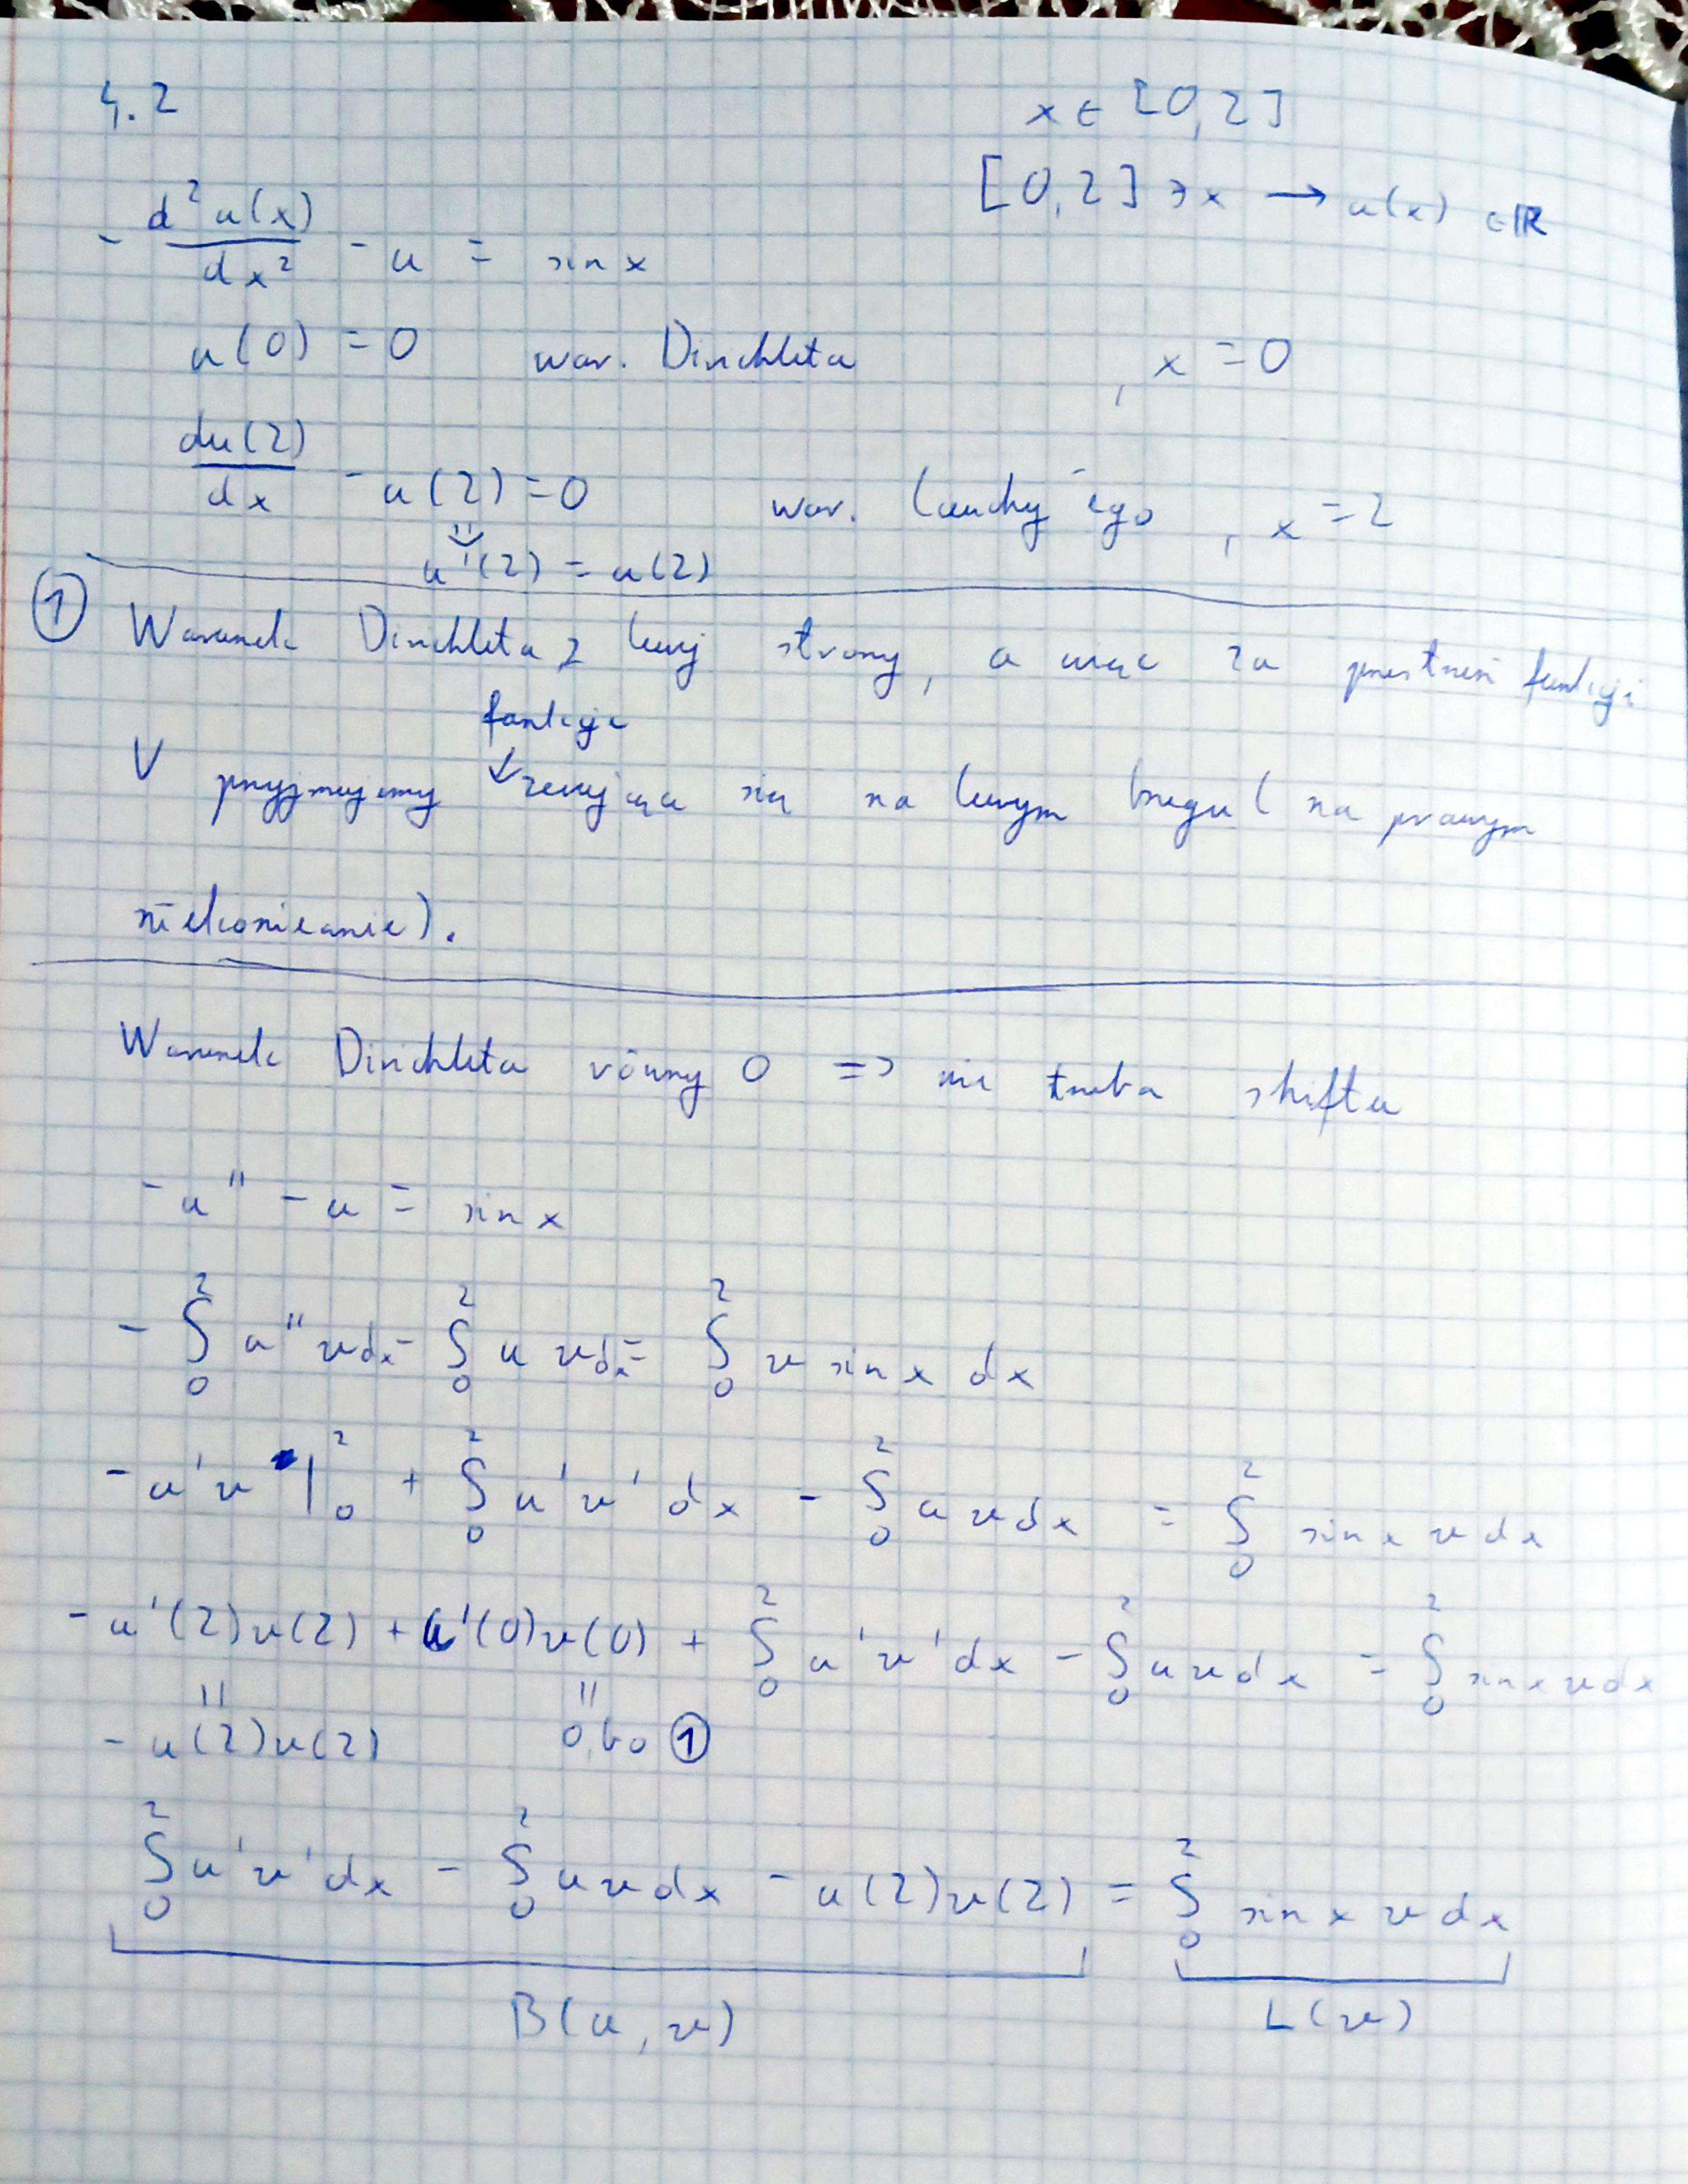 4.2
x ∈ [0,2]
[0,2] ∋ x → u(x) ∈ ℝ
- d²u(x)/dx² - u = sin x
u(0) = 0 war. Dirichleta , x = 0
du(2)/dx - u(2) = 0 war. Cauchy'ego , x = 2
⇓
u'(2) = u(2)
① Warunek Dirichleta z lewej strony, a więc za przestrzeń funkcji
funkcje
V przyjmujemy ↓ zerujące się na lewym brzegu (na prawym
niekoniecznie).
Warunek Dirichleta równy 0 => nie trzeba shiftu
- u'' - u = sin x
- ∫₀² u'' v dx - ∫₀² u v dx = ∫₀² v sin x dx
- u'v |₀² + ∫₀² u'v' dx - ∫₀² u v dx = ∫₀² sin x v dx
- u'(2)v(2) + u'(0)v(0) + ∫₀² u'v' dx - ∫₀² u v dx = ∫₀² sin x v dx
= =
- u(2)v(2) 0, bo ①
∫₀² u'v' dx - ∫₀² u v dx - u(2)v(2) = ∫₀² sin x v dx
B(u,v) L(v)